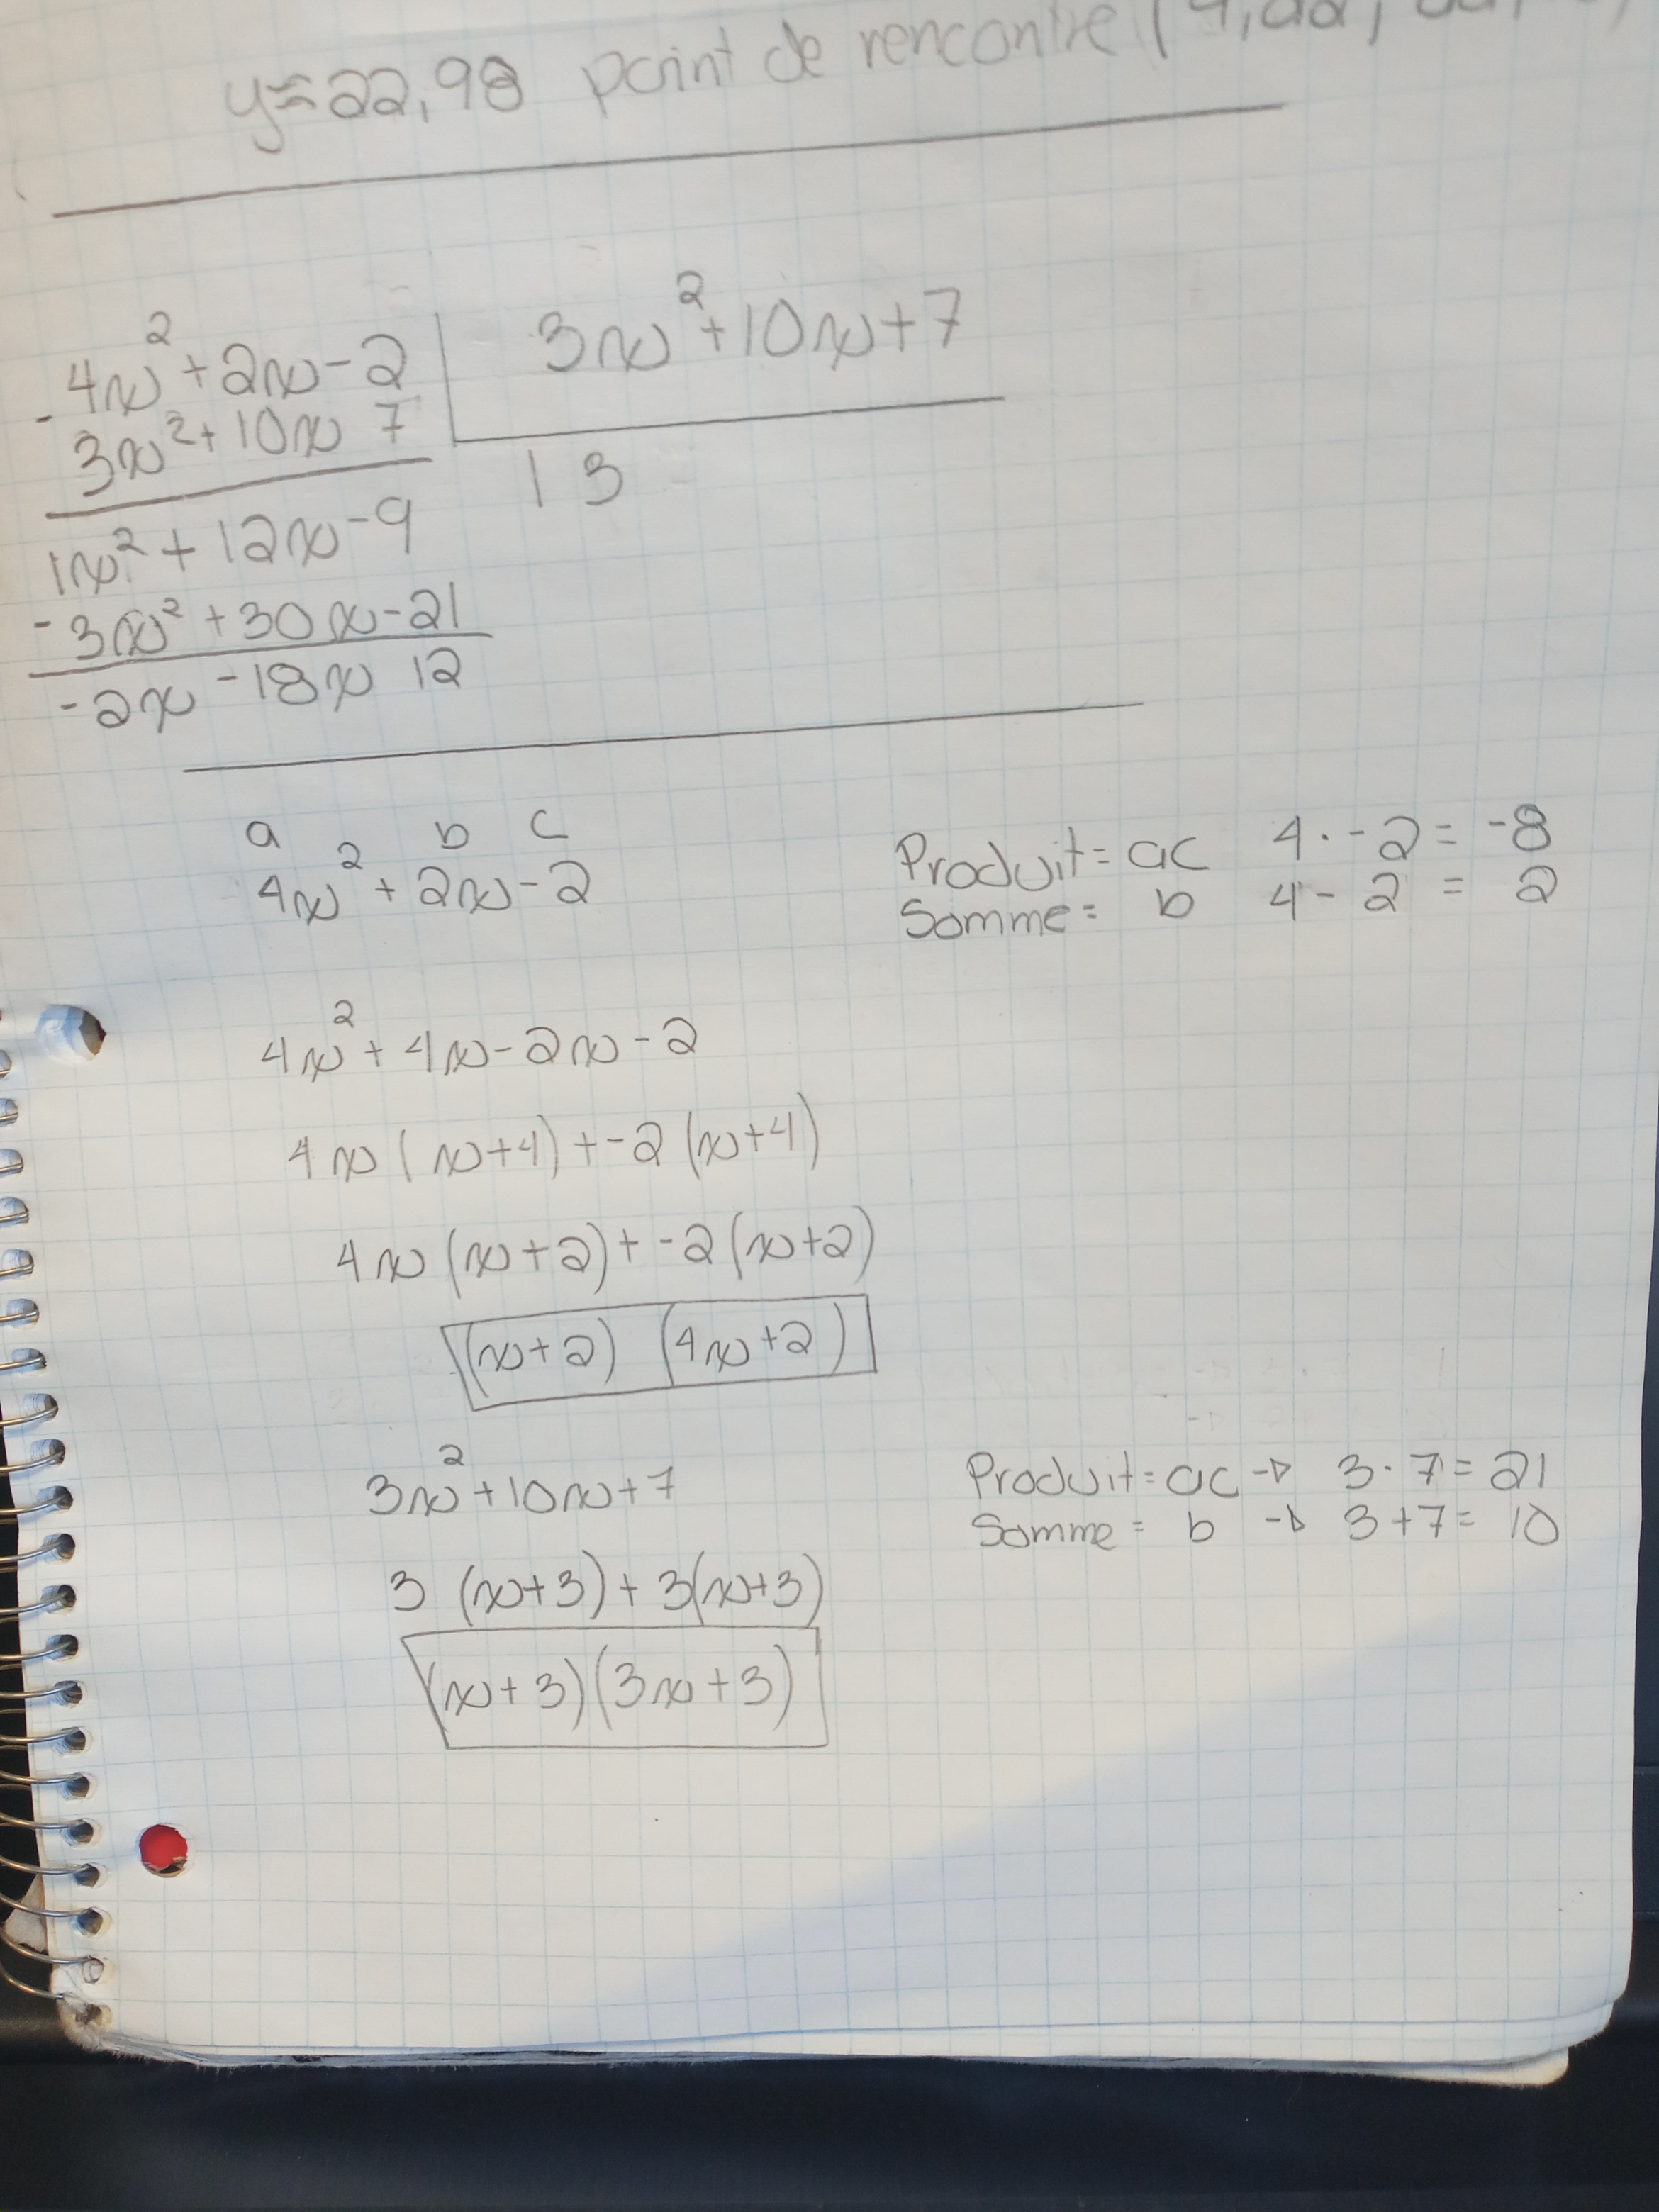 y≈22,98 point de rencontre (
4x²+2x-2 | 3x²+10x+7
- 3x²+10x 7
1 3
1x²+12x-9
- 3x²+30x-21
-2x -18x 12
a b c
4x²+2x-2
Produit= ac 4·-2= -8
Somme= b 4-2 = 2
4x²+4x-2x-2
4x(x+4)+-2(x+4)
4x(x+2)+-2(x+2)
(x+2) (4x+2)
3x²+10x+7
Produit= ac → 3·7= 21
Somme= b → 3+7= 10
3 (x+3)+3(x+3)
(x+3)(3x+3)